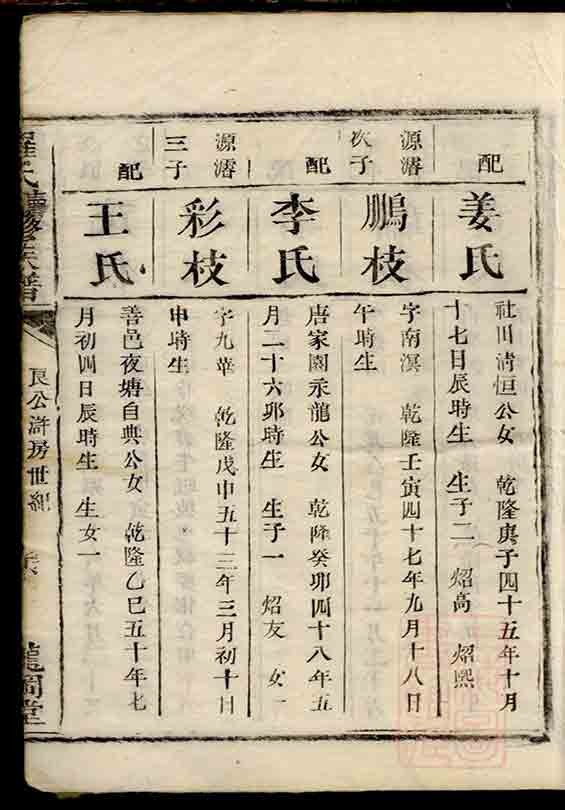 配
姜氏
社田清恒公女 乾隆庚子四十五年十月
十七日辰時生 生子二 炤高 炤熙
源濬
次子
鵬枝
字南溟 乾隆壬寅四十七年九月十八日
午時生
配
李氏
唐家園永龍公女 乾隆癸卯四十八年五
月二十六卯時生 生子一 炤友 女一
源濬
三子
彩枝
字九華 乾隆戊申五十三年三月初十日
申時生
配
王氏
善邑夜塘自典公女 乾隆乙巳五十年七
月初四日辰時生 生女一
氏續修族譜
良公滸房世紀
龍圖堂